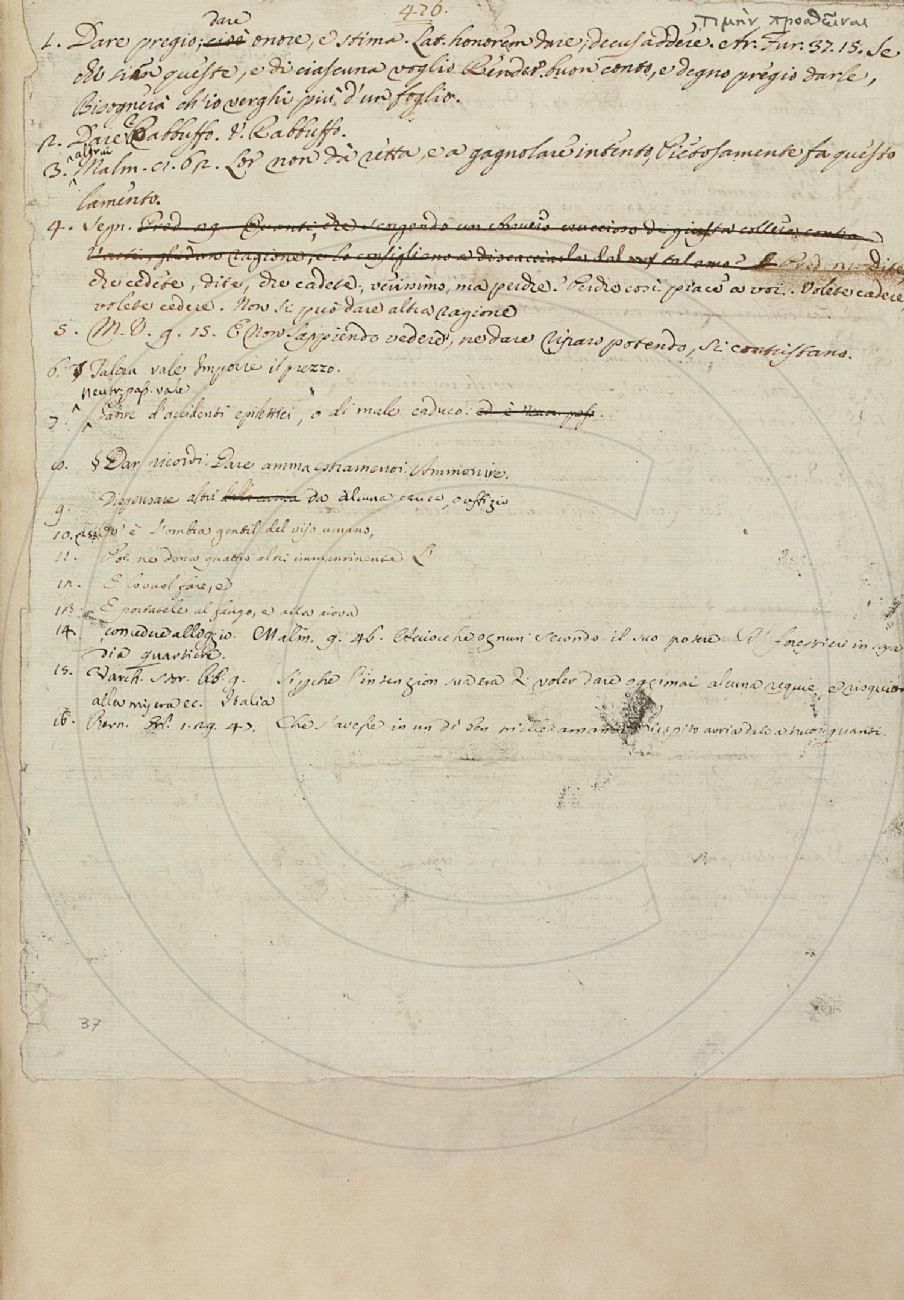 426.
τιμὴν προσθεῖναι
1. Dare pregio, cioè dare onore, e stima. Lat. honorem dare, decus addere. Ar. Fur. 37. 13. Se
di queste, e di ciascuna voglio Render buon conto, e degno pregio darle,
Bisognerà ch'io verghi più d'un foglio.
2. Dare Rabbuffo. V. Rabbuffo.
3. Malm. 62. Lor non dà retta, e a gagnolare intento, Pietosamente fa questo
lamento.
4. Segn. Pred. 29. Quanti, che scorgendo un cruccioso di giusta collera contra
ragione, e lo consigliano a discacciarla dal talamo? Pred. Dite,
che cedete, dite, che cadete, verissimo, ma perchè? Perchè così piace a voi. Volete cadere,
volete cedere. Non si può dare altra ragione
5. M. V. 9. 15. E non sappiendo vedere, nè dare riparo potendo, si contristano.
6. Talora vale Imporre il prezzo.
Neutr. pass. vale
7. Patire d'accidenti epilettici, o di male caduco. ed è Neutr. pass.
8. § Dar ricordi. Dare ammaestramenti. Ammonire.
9. Dispensare altri da alcuna carica, o uffizio
10. è l'ombra gentil del viso umano,
11. Poi ne dona quattro altri immantinente
12. E lo vuol fare, e
13. E portatele al fango, e alla piova
14. concedere alloggio. Malm. 9. 46. Acciocchè ognun secondo il suo potere forestieri in
dia quartiere.
15. Varch. Stor. lib. 9. Sicchè l'intenzion sua era di voler dare oggimai alcuna requie, e
alla misera ec. Italia
16. Bern. Orl. 1. 29. 43. Che s'avesse in un dì ben mille amanti quanti.
37